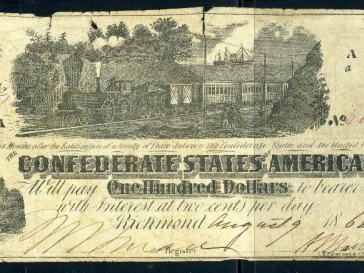 A
a
No
Months after the Ratification of a Treaty of Peace between the Confederate States and the United
THE CONFEDERATE STATES AMERICA
Will pay One Hundred Dollars to bearer
with Interest at two cents per day.
Richmond August 9 186
for Register